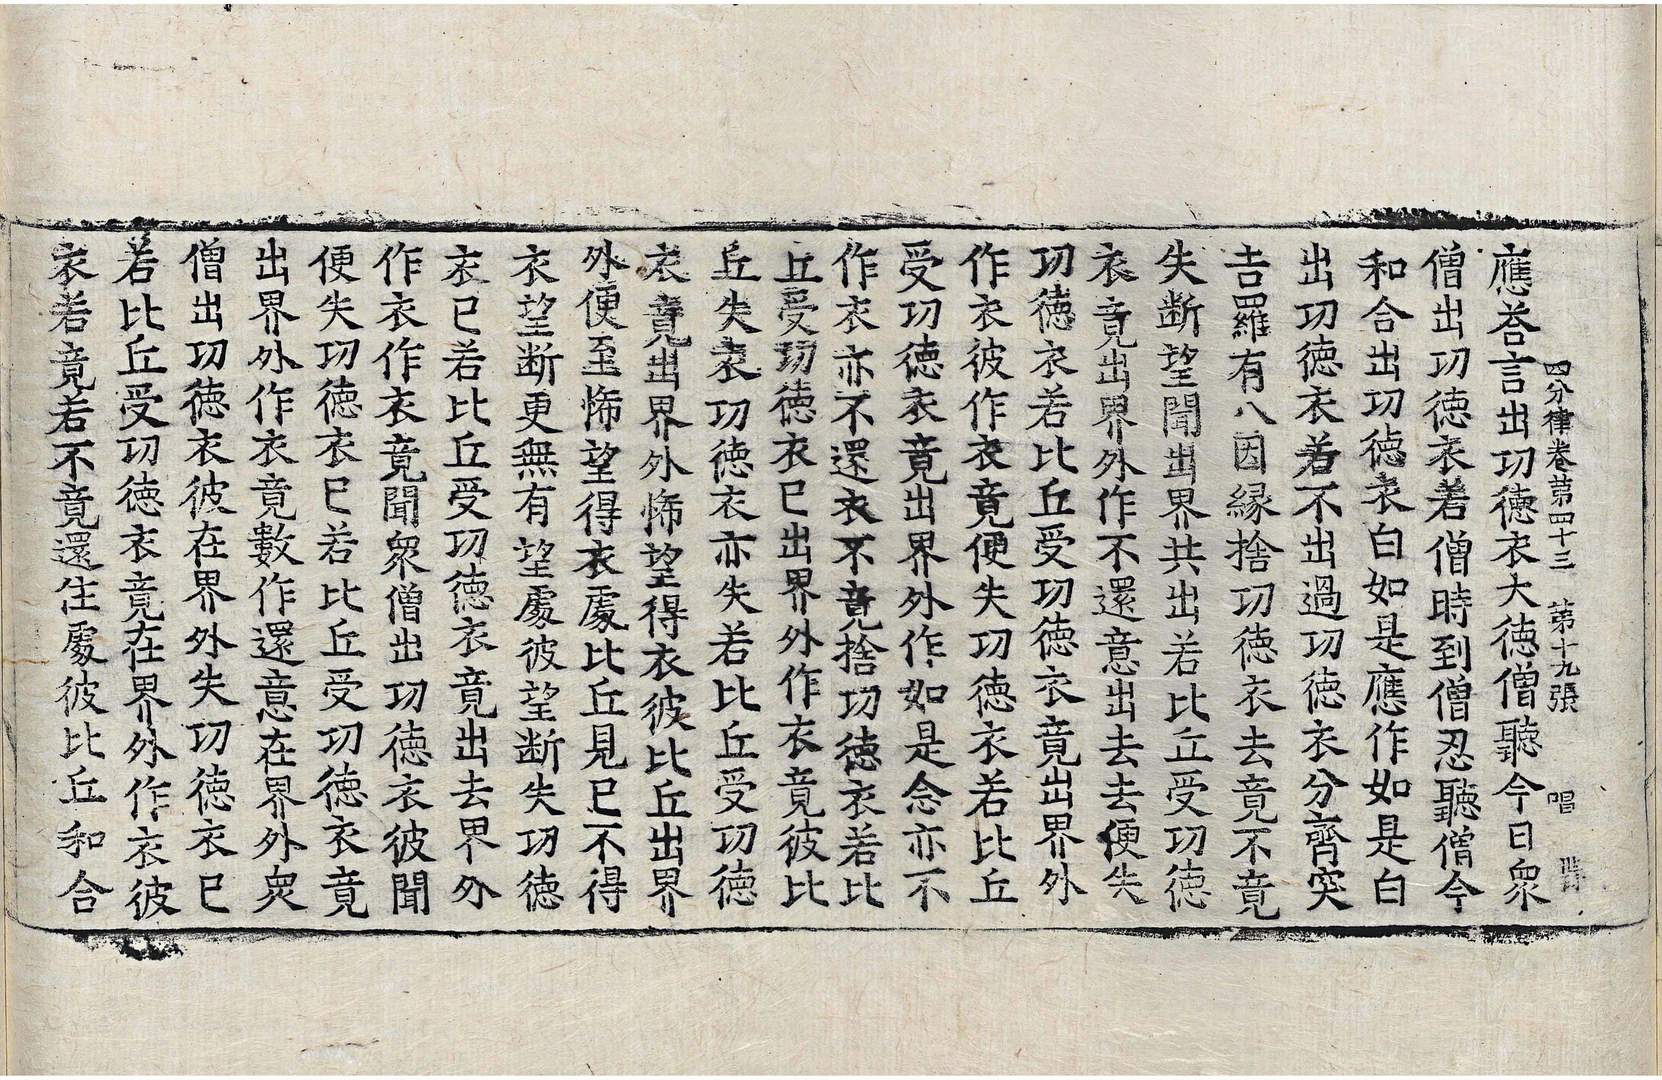 四分律卷第四十三 第十九張 唱
應荅言出功德衣大德僧聽今日衆
僧出功德衣若僧時到僧忍聽僧今
和合出功德衣白如是應作如是白
出功德衣若不出過功德衣分齊突
吉羅有八因緣捨功德衣去竟不竟
失断望聞出界共出若比丘受功德
衣竟出界外作不還意出去去便失
功德衣若比丘受功德衣竟出界外
作衣彼作衣竟便失功德衣若比丘
受功德衣竟出界外作如是念亦不
作衣亦不還衣不竟捨功德衣若比
丘受功德衣已出界外作衣竟彼比
丘失衣功德衣亦失若比丘受功德
衣竟出界外悕望得衣彼比丘出界
外便至悕望得衣處比丘見已不得
衣望断更無有望處彼望断失功德
衣已若比丘受功德衣竟出去界外
作衣作衣竟聞衆僧出功德衣彼聞
便失功德衣已若比丘受功德衣竟
出界外作衣竟數作還意在界外衆
僧出功德衣彼在界外失功德衣已
若比丘受功德衣竟在界外作衣彼
衣若竟若不竟還住處彼比丘和合